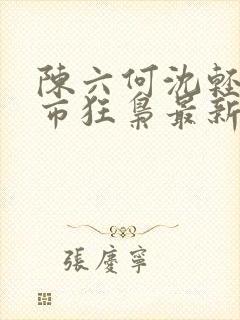 陳六何沈輕
市狂梟最新
張慶寧